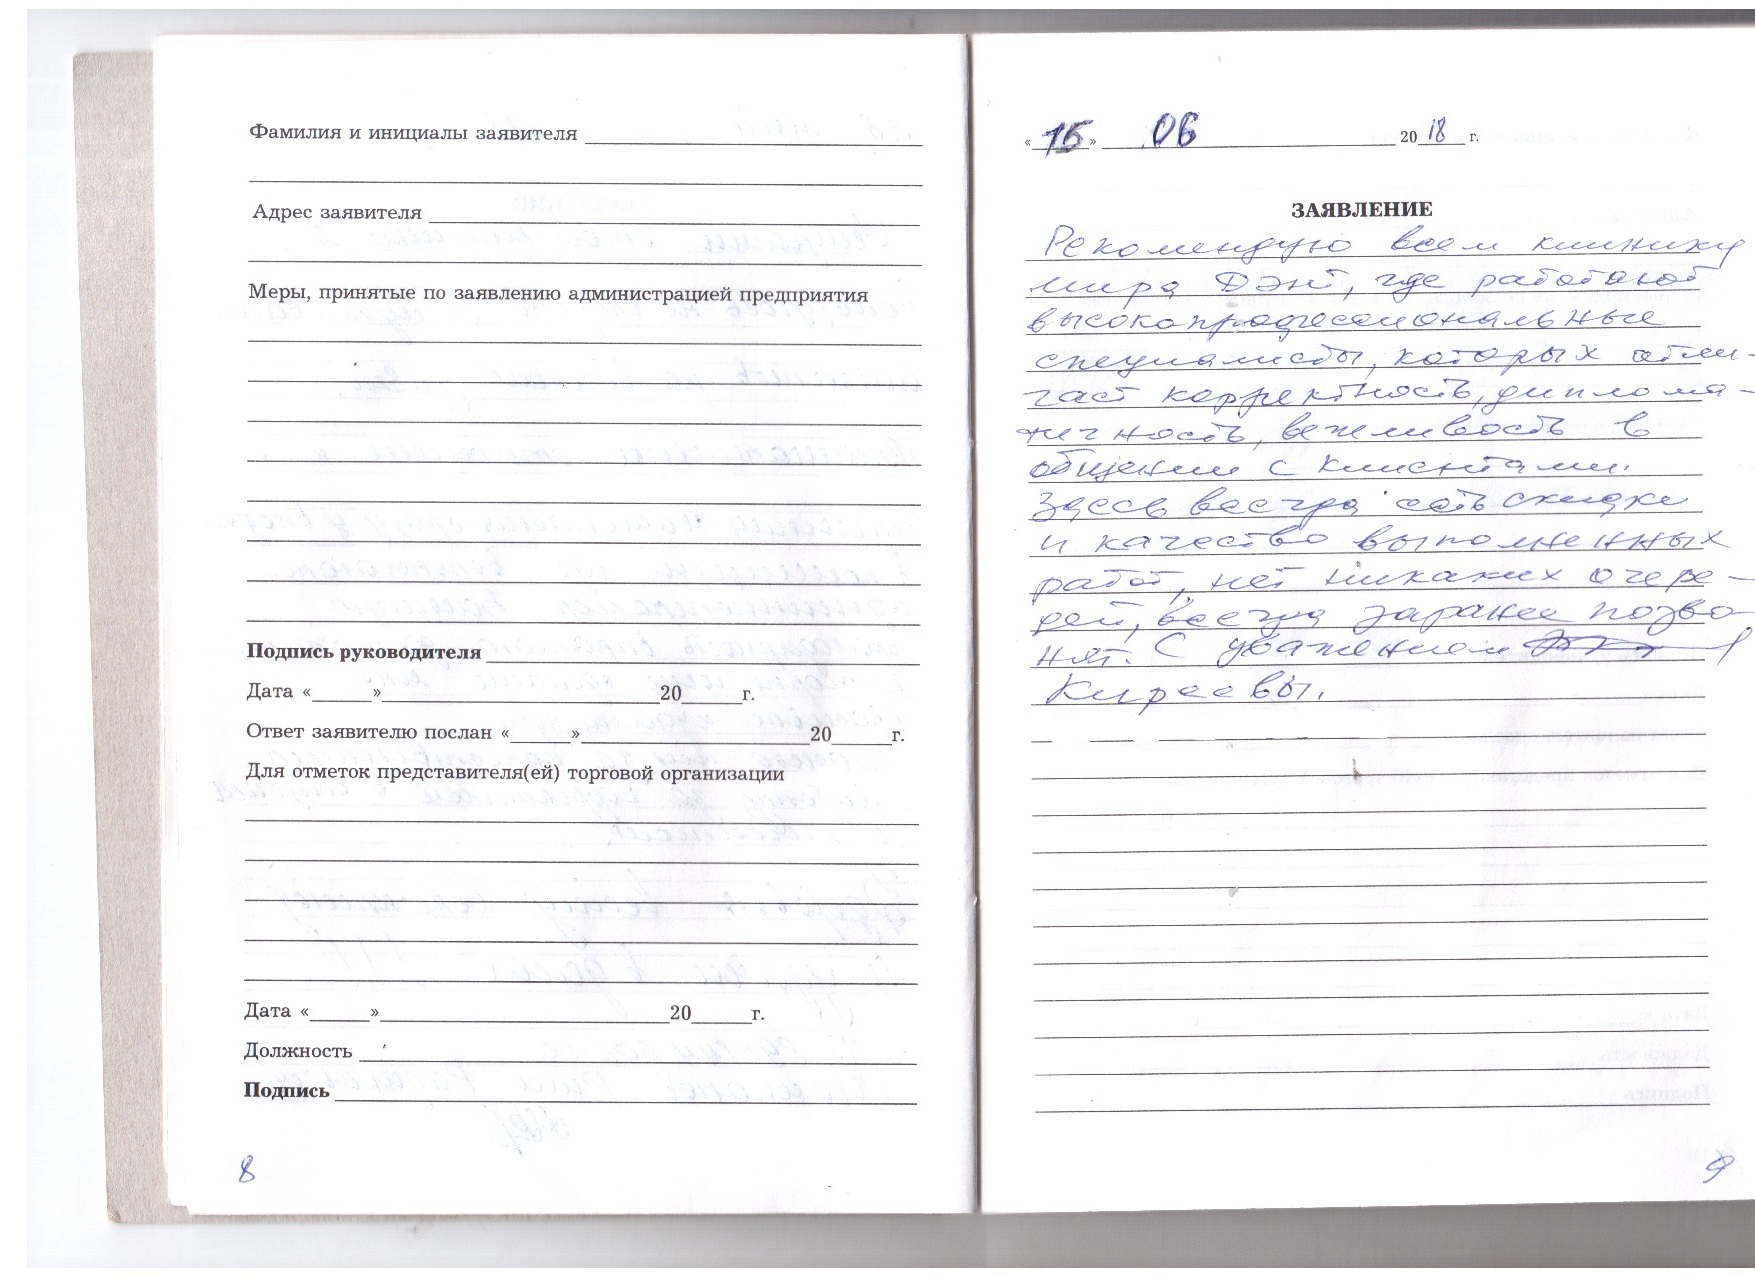 Фамилия и инициалы заявителя
Адрес заявителя
Меры, принятые по заявлению администрацией предприятия
Подпись руководителя
Дата «» 20 г.
Ответ заявителю послан «» 20 г.
Для отметок представителя(ей) торговой организации
Дата «» 20 г.
Должность
Подпись
8
«15» 06 2018 г.
ЗАЯВЛЕНИЕ
Рекомендую всем клинику
мира Дэнт, где работают
высокопрофессиональные
специалисты, которых отли-
чает корректность, диплома-
тичность, вежливость в
общении с клиентами.
Здесь всегда есть скидки
и качество выполненных
работ, нет никаких очере-
дей, всегда заранее позво-
нят. С уважением
Киреевы.
9